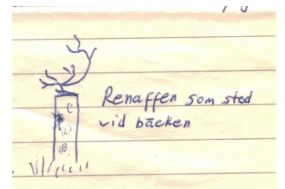 Renaffen som stod
vid bäcken